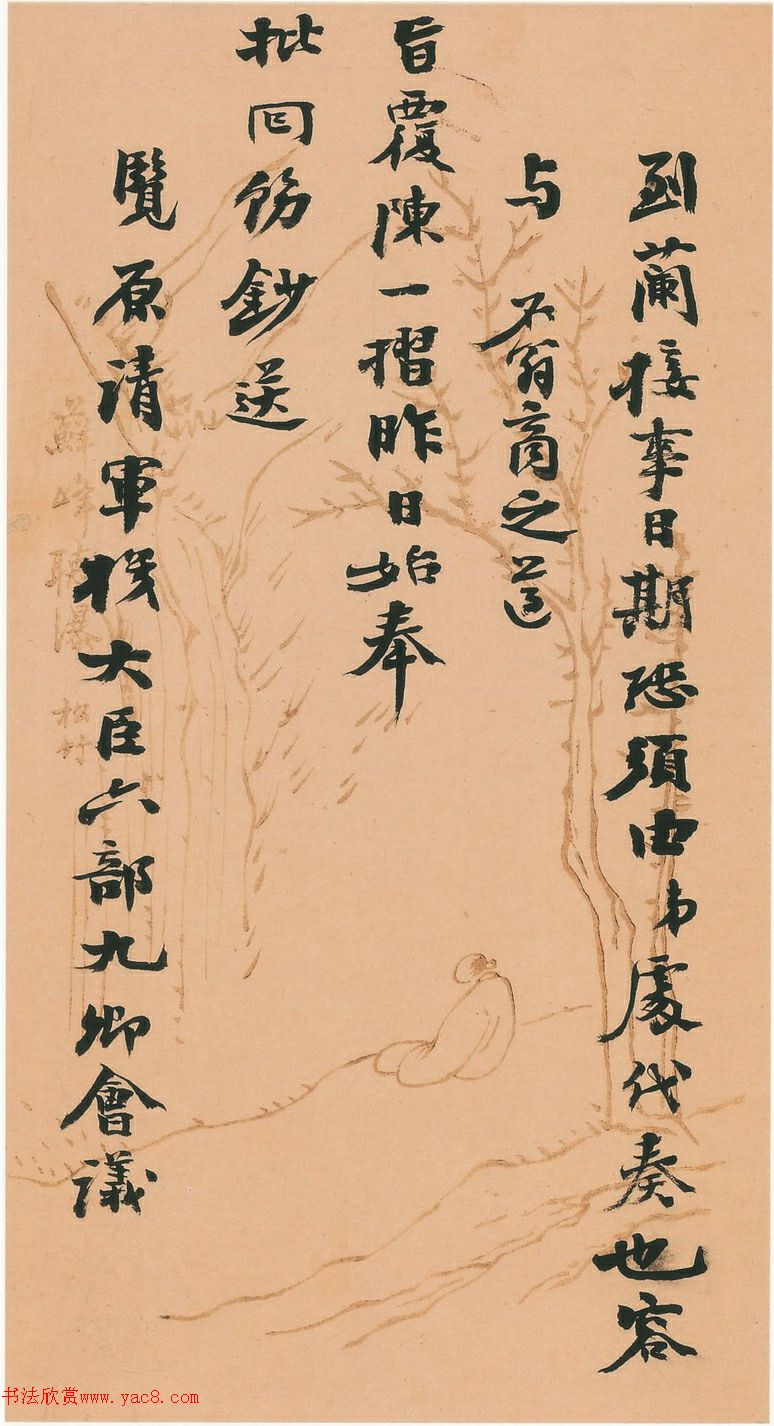 到蘭接事日期恐須由弟處代奏也容
与 翁商之遵
旨覆陳一摺昨日始奉
批回飭鈔送
覽原請軍機大臣六部九卿會議
峰聽瀑
松竹
书法欣赏www.yac8.com